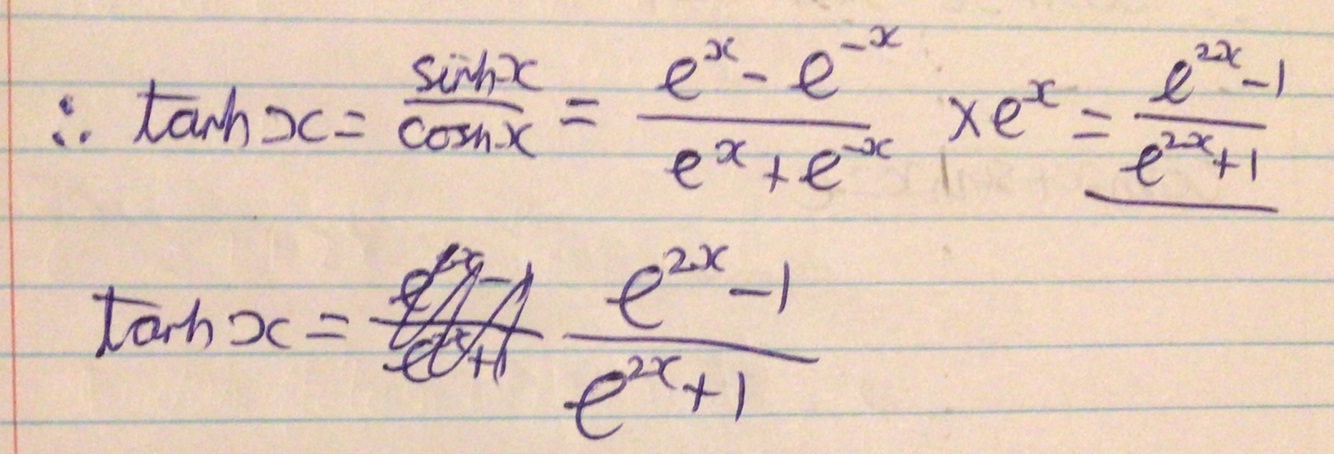 ∴ tanh x = sinh x / cosh x = (e^x - e^-x) / (e^x + e^-x) × e^x = (e^2x - 1) / (e^2x + 1)
tanh x = (e^2x - 1) / (e^2x + 1)